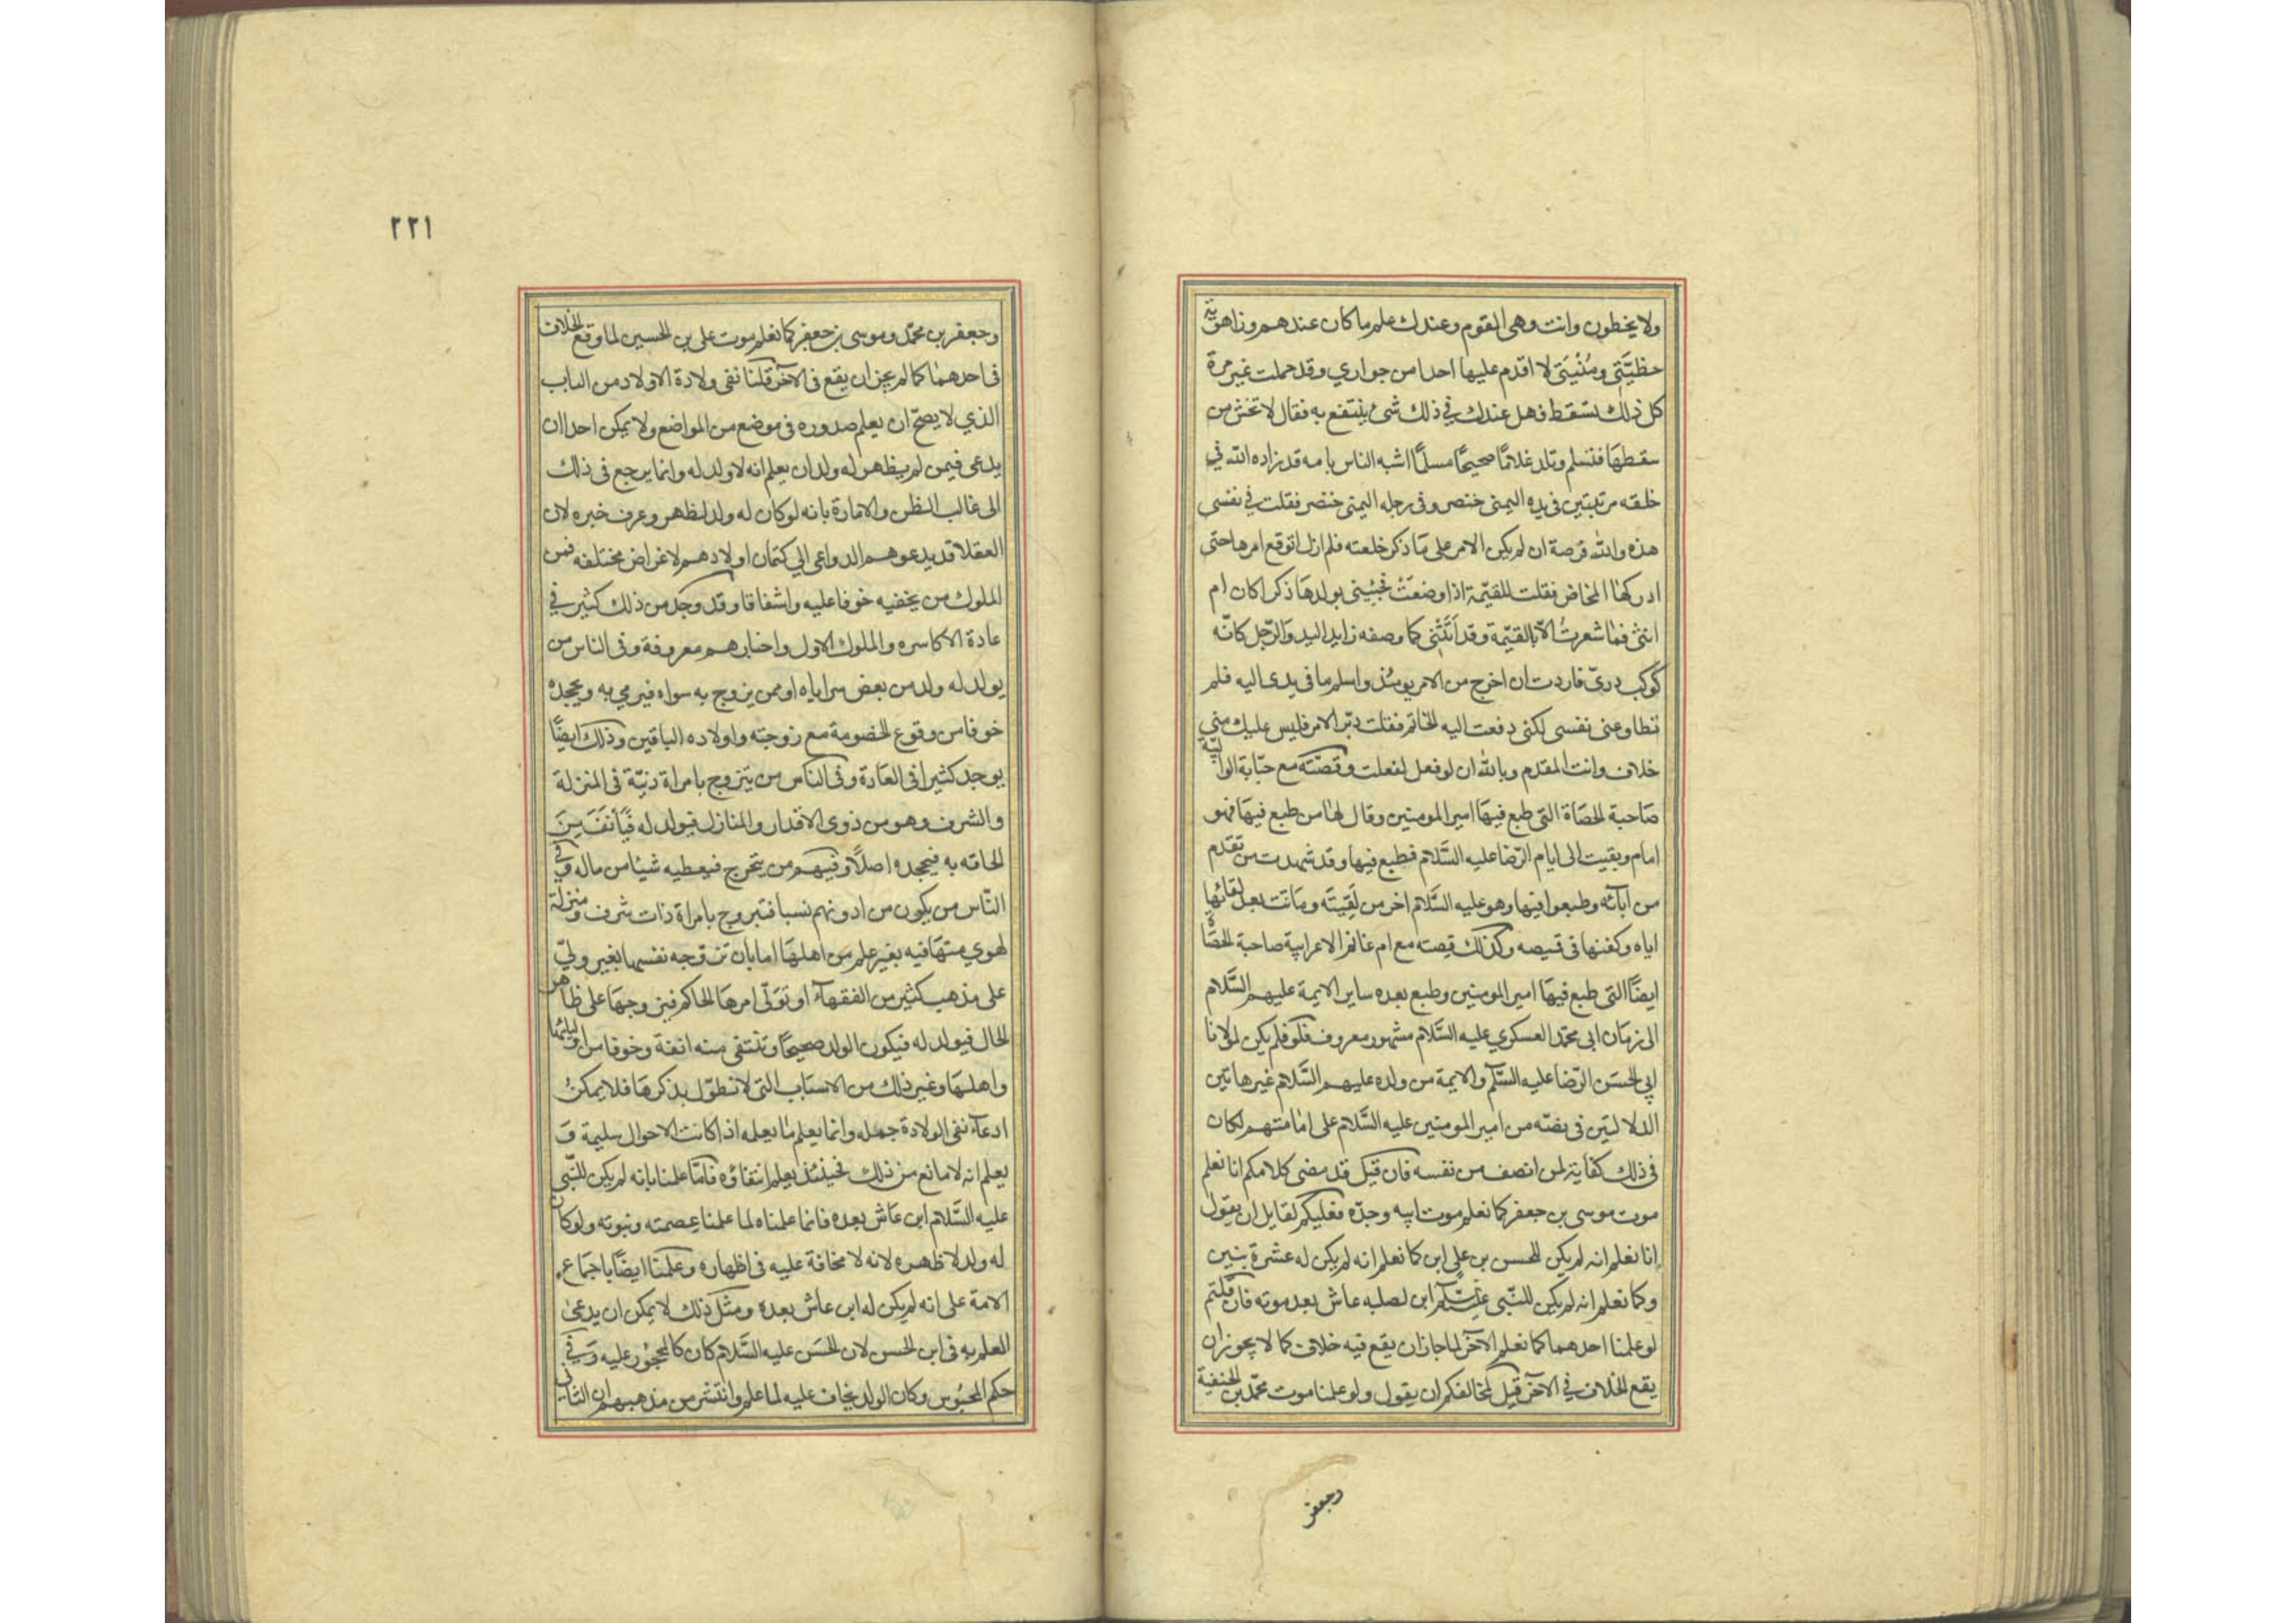 ولا يخطون وانت وهى القوم وعندك علم ما كان عندهم وزاهقية
حظيّتي ومُنْيَتي لا اقدم عليها احدا من جواري وقد حملت غير مرة
كل ذلك تسقط فهل عندك في ذلك شئ ينتفع به فقال لا تخش من
سقطها فتسلم وتلد غلامًا صحيحًا مسلمًا اشبه الناس بامه قد زاده الله في
خلقه مرتبتين في يده اليمنى خنصر وفى رجله اليمنى خنصر فقلت في نفسي
هذه والله فرصة ان لم يكن الامر على ما ذكر خلعته فلم ازل اتوقع امرها حتى
ادركها المخاض فقلت للقيّمة اذا وضعَتْ فجيئينى بولدها ذكرا كان ام
انثى فما شعرت الّا بالقيّمة وقد اَتَتْنى كما وصفه زايد اليد والرّجل كانّه
كوكب درىّ فاردت ان اخرج من الامر يومئذ واسلم ما في يدى اليه فلم
تطاوعنى نفسى لكنى دفعت اليه الخاتم فقلت دبّر الامر فليس عليك منى
خلاف وانت المقدم وبالله ان لو فعل لفعلت وقصّته مع حبّابة الوالبيّة
صَاحبة الحصَاة التى طبع فيهَا امير المومنين وقال لها من طبع فيهَا فهو
امام وبقيت الى ايام الرّضا عليه السَّلام فطبع فيها وقد شهدت من تقدم
من ابآئه وطبعوا فيها وهو عليه السَّلام اخر من لَقِيتَه ومَاتَت بعد لقائها
اياه وكفنها فى قميصه وكذلك قصته مع ام غانم الاعرابية صاحبة الحصَاة
ايضًا التى طبع فيهَا امير المومنين وطبع بعده ساير الايمة عليهم السَّلام
الى زمَان ابى محمّد العسكري عليه السَّلام مشهور معروف فلو لم يكن لمولانا
ابي الحسَن الرّضا عليه السّلام والايمة من ولده عليهم السَّلام غير هاتين
الدلالتين فى نصّه من امير المومنين عليه السَّلام على امامتهم لكان
فى ذلك كفاية لمن انصف من نفسه فان قيل قد مضى كلامكم انا نعلم
موت موسى بن جعفر كما نعلم موت ابيه وجدّه فعليكم لقايل ان يقول
انا نعلم انه لم يكن للحسن بن علي ابن كما نعلم انه لم يكن له عشرة بنين
وكما نعلم انه لم يكن للنّبي عليه السّلم ابن لصلبه عاش بعد موته فان قلتم
لو علمنا احدهما كما نعلم الآخر لما جاز ان يقع فيه خلاف كما لا يجوز ان
يقع الخلاف في الآخر قيل لمخالفكم ان يقول ولو علمنا موت محمّد بن الحنفية
وجعفر
٢٢١
وجعفر بن محمّد وموسى بن جعفر كما نعلم موت على بن الحسين لما وقع الخلاف
فى احدهما كما لم يجز ان يقع فى الآخر قلنا نفى ولادة الاولاد من الباب
الذي لا يصحّ ان يعلم صدوره فى موضع من المواضع ولا يمكن احدا ان
يدعى فيمن لم يظهر له ولد ان يعلم انه لا ولد له وانما يرجع فى ذلك
الى غالب الظن والامارة بانه لو كان له ولد لظهر وعرف خبره لان
العقلا قد يدعوهم الدواعى الي كتمان اولادهم لاغراض مختلفه فمن
الملوك من يخفيه خوفا عليه واشفاقا وقد وجد من ذلك كثير في
عادة الاكاسره والملوك الاول واخبارهم معروفة وفى الناس من
يولد له ولد من بعض سراياه او ممن يزوج به سواه فيرمي به ويجحده
خوفا من وقوع الخصومة مع زوجته واولاده الباقين وذلك ايضًا
يوجد كثيرا فى العَادة وفى الناس من يتزوج بامراة دنيّة فى المنزلة
والشرف وهو من ذوى الاقدار والمنازل فيولد له فيَأنَفَ مِنَ
الحاقه به فيجحده اصلًا وفيهم من يتحرج فيعطيه شيئا من ماله وفي
النّاس من يكون من ادونهم نسبا فتزوج بامراة ذات شرف ومنزلة
لهوي منها فيه بغير علم من اهلهَا اما بان تزوّجه نفسها بغير وليّ
على مذهب كثير من الفقهآء او تَولّى امرهَا الحاكم فيزوجهَا على ظاهر
الحال فيولد له فيكون الولد صحيحًا وتنتفى منه انفة وخوفا من اوليائها
واهلهَا وغير ذلك من الاسبَاب التى لا نطوّل بذكرهَا فلا يمكنُ
ادعآء نفى الولادة جمله وانما يعلم ما يعلمه اذا كانت الاحوال سليمة وَ
يعلم انه لا مانع من ذلك فحينئذ يعلم انتفاؤه فامّا علمنا بانه لم يكن للنّبي
عليه السَّلام ابن عَاش بعده فانما علمناه لما علمنا عصمته ونبوته ولو كان
له ولد لاظهره لانه لا مخافة عليه فى اظهاره وعلمنا ايضًا باجمَاع
الامة على انه لم يكن له ابن عاش بعده ومثل ذلك لا يمكن ان يدعىٰ
العلم به فى ابن الحسن لان الحَسَن عليه السَّلام كان كالمحجُور عليه وَفي
حكم المحبُوس وكان الولد يخاف عليه لما علم وانتشر من مذهبهم ان الثانى